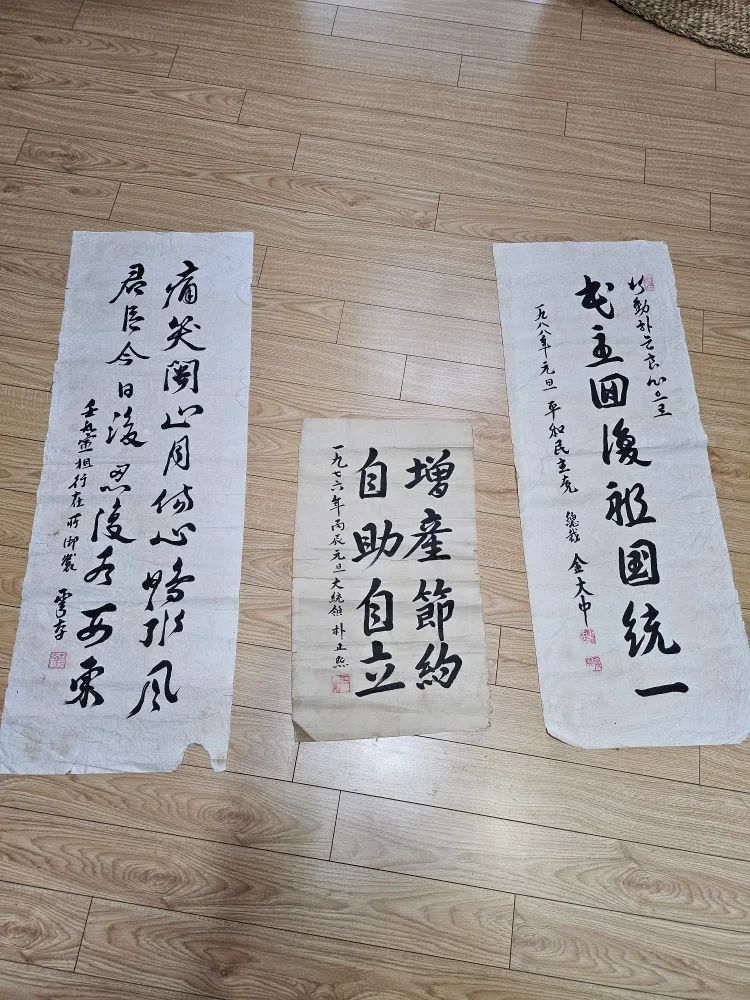 痛哭関山月傷心鴨水風
君臣今日後忍復各西東
壬辰宣祖行在所御製 雲存
增產節約
自助自立
一九七六年丙辰元旦 大統領 朴正熙
行動하는良心으로
民主回復祖国統一
一九八八年元旦 平和民主党 總裁 金大中